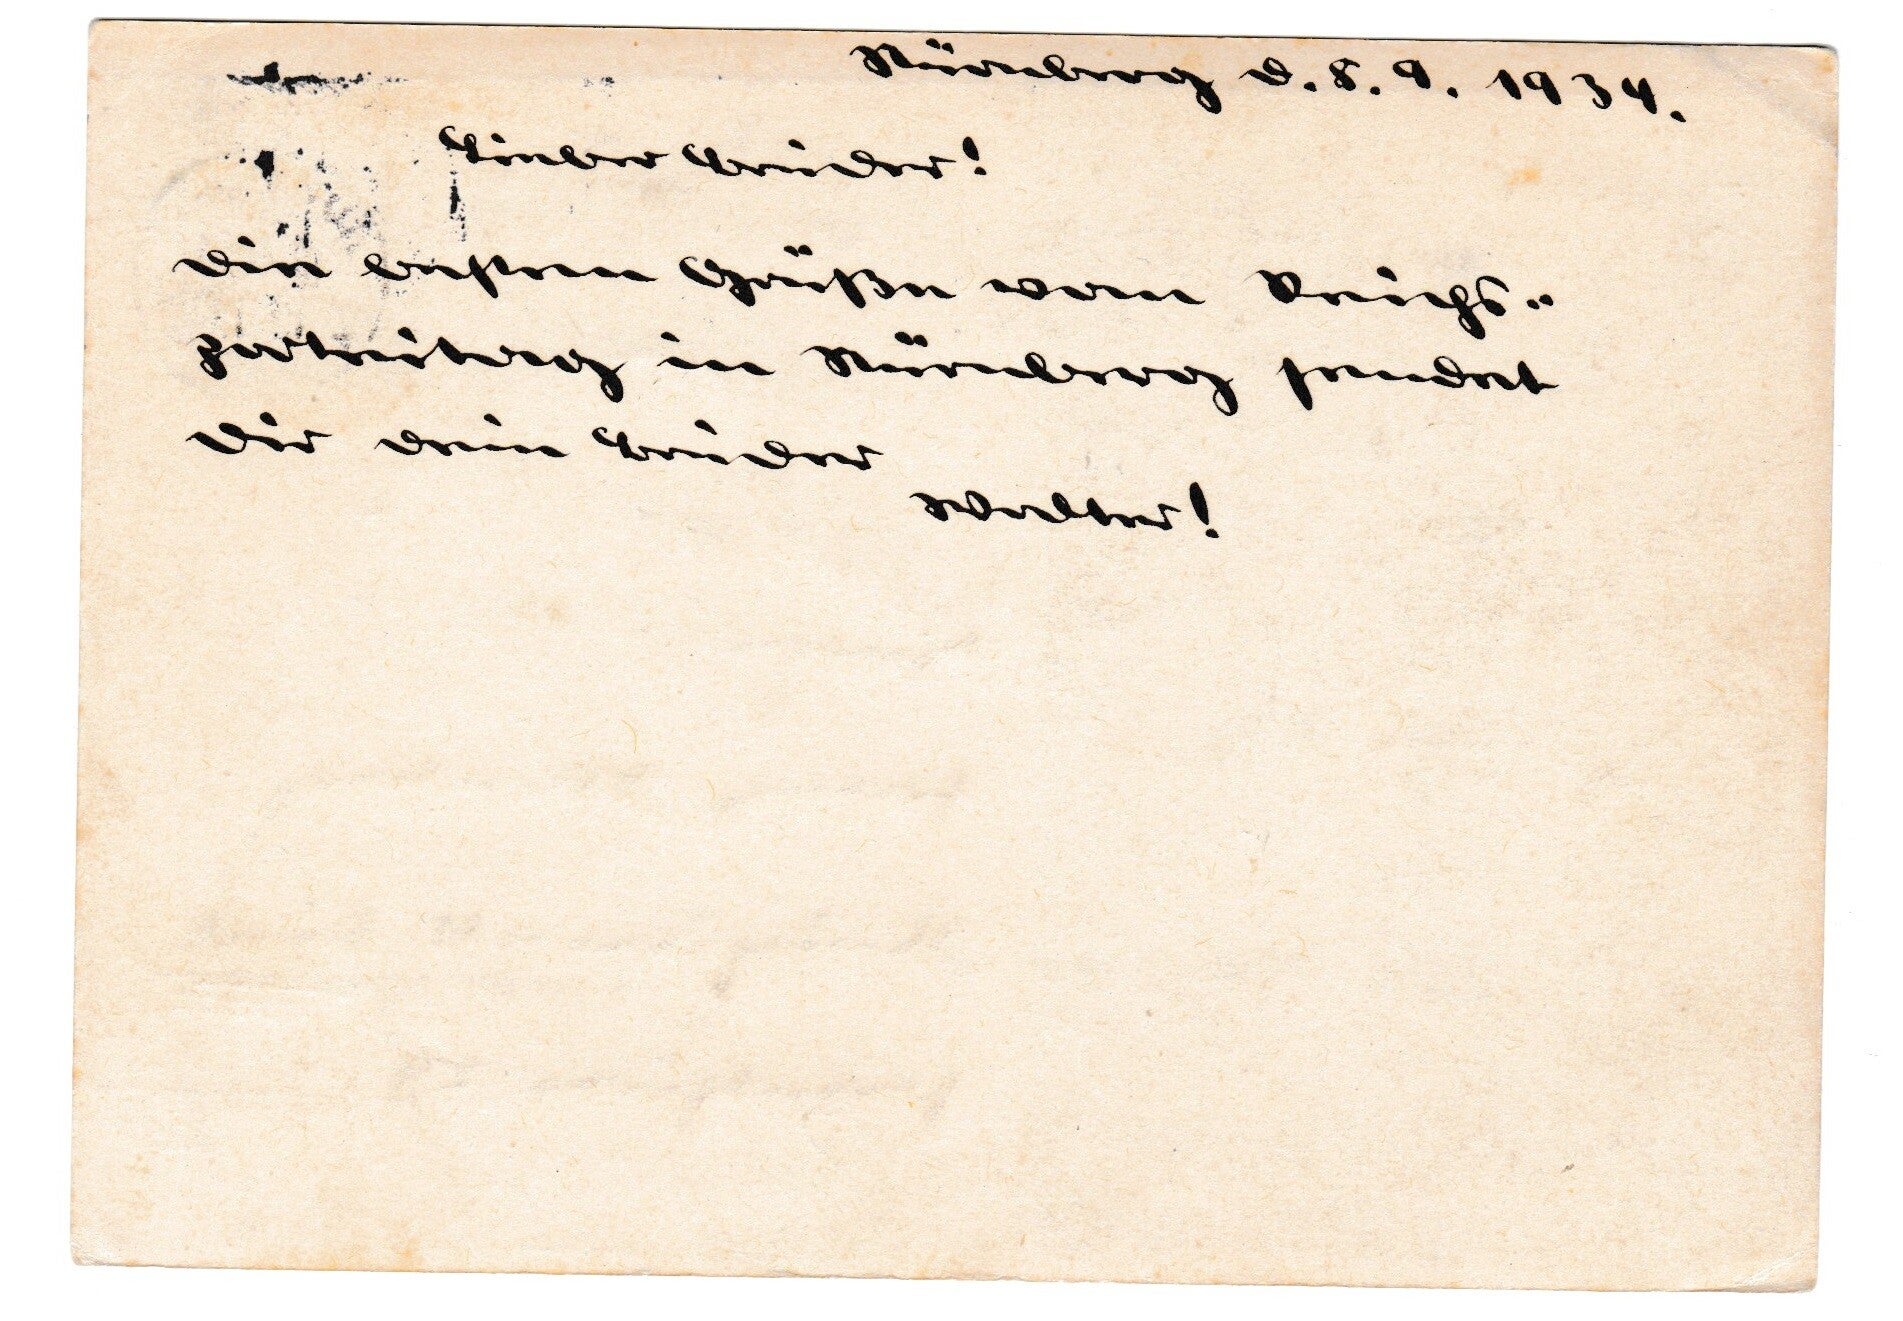 Nürnberg d. 8. 9. 1934.
Lieber Bruder!
Die besten Grüße vom Reichs-
parteitag in Nürnberg sendet
Dir dein Bruder
Walter!